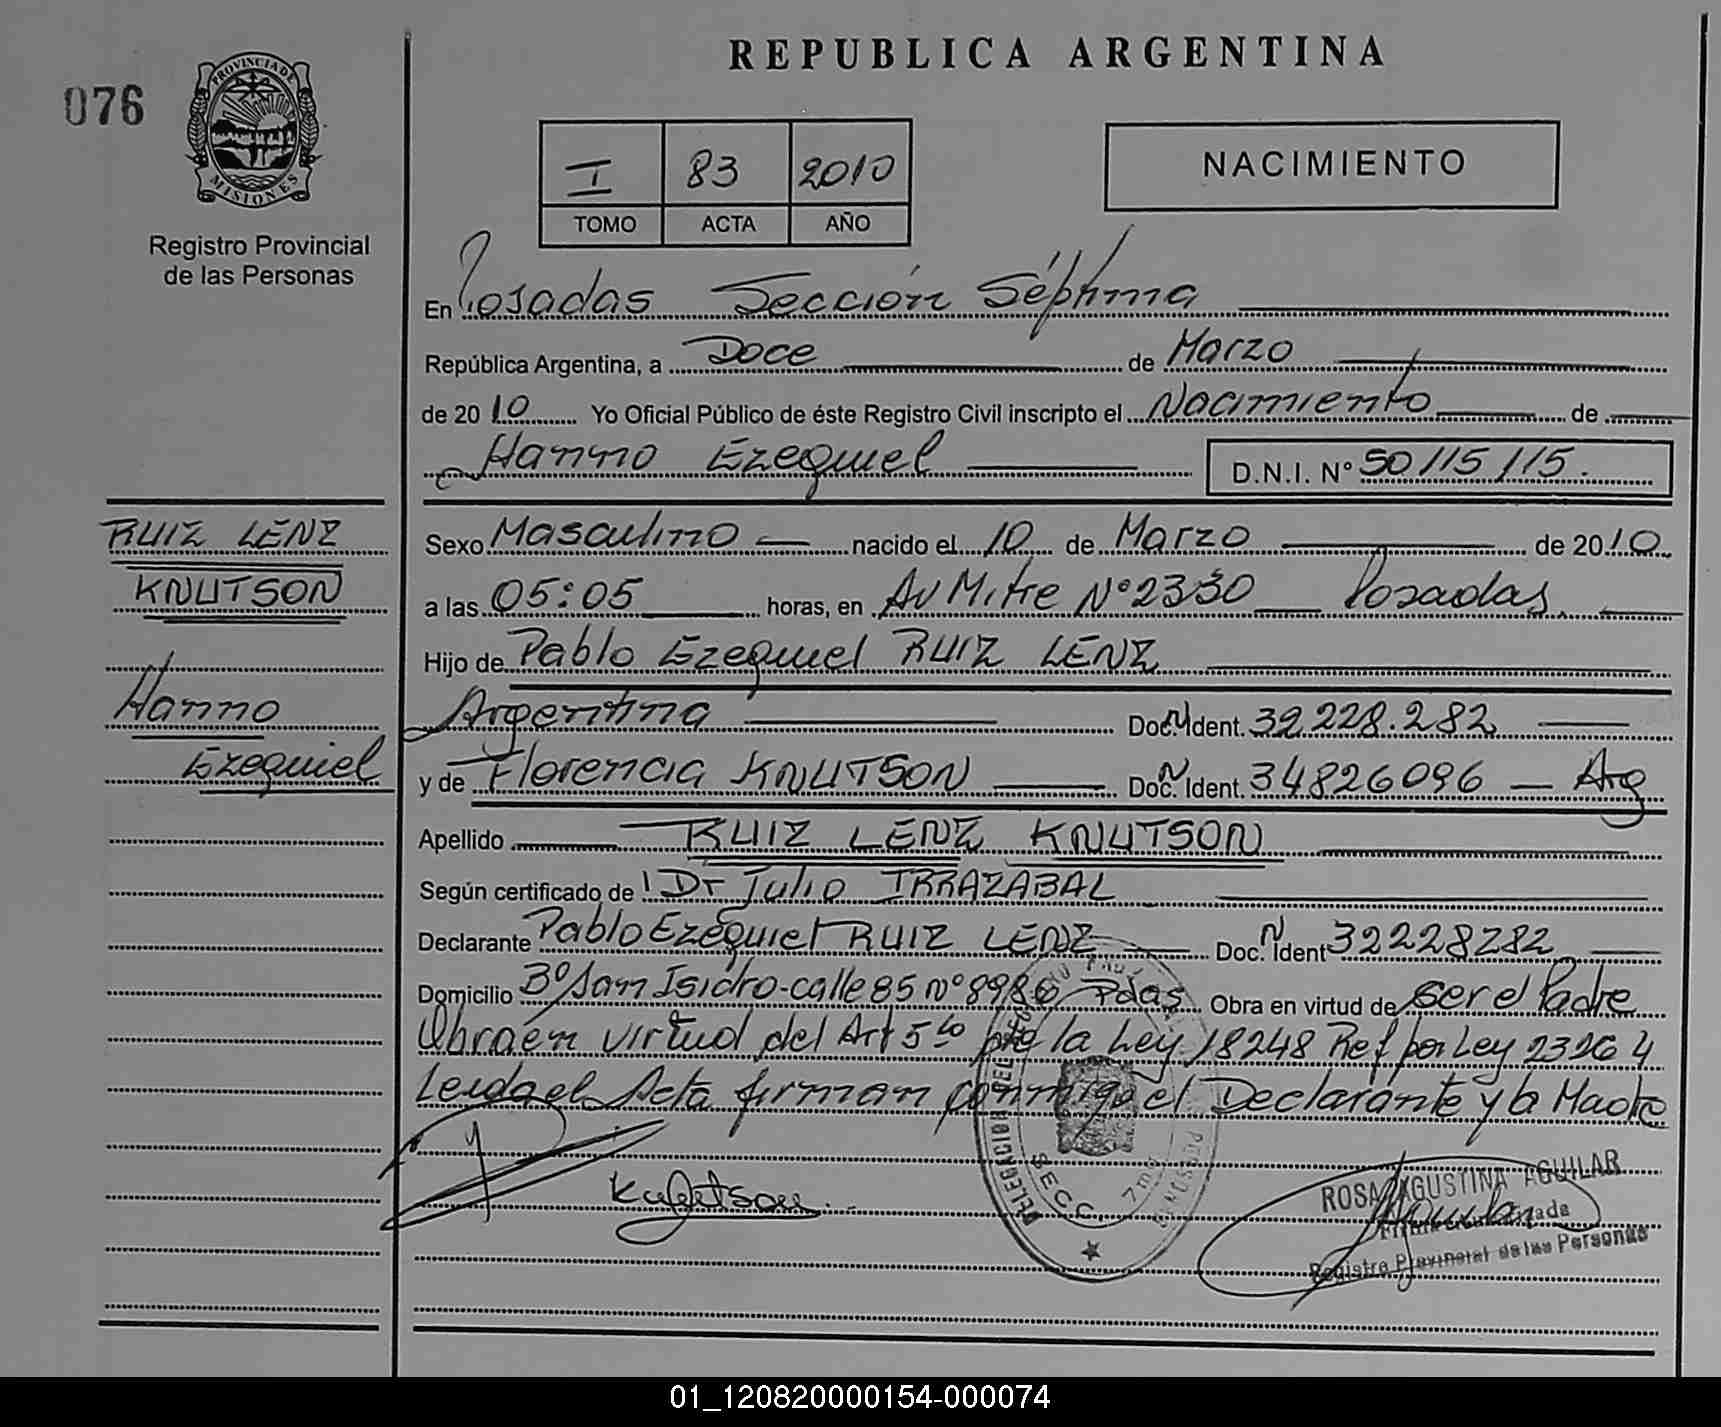 REPUBLICA ARGENTINA
076
PROVINCIA DE
MISIONES
Registro Provincial
de las Personas
I 83 2010
TOMO ACTA AÑO
NACIMIENTO
En Posadas Sección Séptima
República Argentina, a Doce de Marzo
de 2010 Yo Oficial Público de éste Registro Civil inscripto el Nacimiento de
Hanno Ezequiel D.N.I. N° 50115115.
RUIZ LENZ
KNUTSON
Hanno
Ezequiel
Sexo Masculino nacido el 10 de Marzo de 2010
a las 05:05 horas, en Av Mitre N° 2330 Posadas
Hijo de Pablo Ezequiel RUIZ LENZ
Argentina Doc. N Ident. 32.228.282
y de Florencia KNUTSON Doc. N Ident. 34826096 — Arg
Apellido RUIZ LENZ KNUTSON
Según certificado de Dr Julio IRRAZABAL
Declarante Pablo Ezequiel RUIZ LENZ Doc. N Ident 32228282
Domicilio B° San Isidro-calle 85 N° 8986 Pdas Obra en virtud de ser el Padre
Obra en virtud del Art 5to de la Ley 18248 Ref por Ley 23264
Leida el Acta firman conmigo el Declarante y la Madre
Knutson
DELEGACION DEL
SECC. 7ma
ROSA AGUSTINA AGUILAR
Registro Provincial de las Personas
01_120820000154-000074